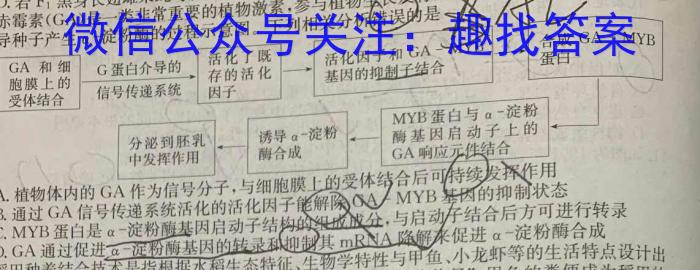 D.若F₁黑身长翅雄
赤霉素(G 非常重要的植物激素,参与植物生长发
导种子产生 淀粉酶的过程 分析错误的是
微信公众号关注:趣找答案
GA 和细胞膜上的受体结合
G 蛋白介导的信号传递系统
活化了既存的活化因子
活化因子和 GA 基因的抑制子结合
GA MYB 蛋白
MYB 蛋白与 α-淀粉酶基因启动子上的 GA 响应元件结合
诱导 α-淀粉酶合成
分泌到胚乳中发挥作用
A. 植物体内的 GA 作为信号分子,与细胞膜上的受体结合后可持续发挥作用
B. 通过 GA 信号传递系统活化的活化因子能解除 GA MYB 基因的抑制状态
C. MYB 蛋白是 α-淀粉酶基因启动子结构的组成成分,与启动子结合后方可进行转录
D. GA 通过促进 α-淀粉酶基因的转录和抑制其 mRNA 降解来促进 α-淀粉酶合成
用种养结合技术是指根据水稻生态特征、生物学特性与甲鱼、小龙虾等的生活特点设计出